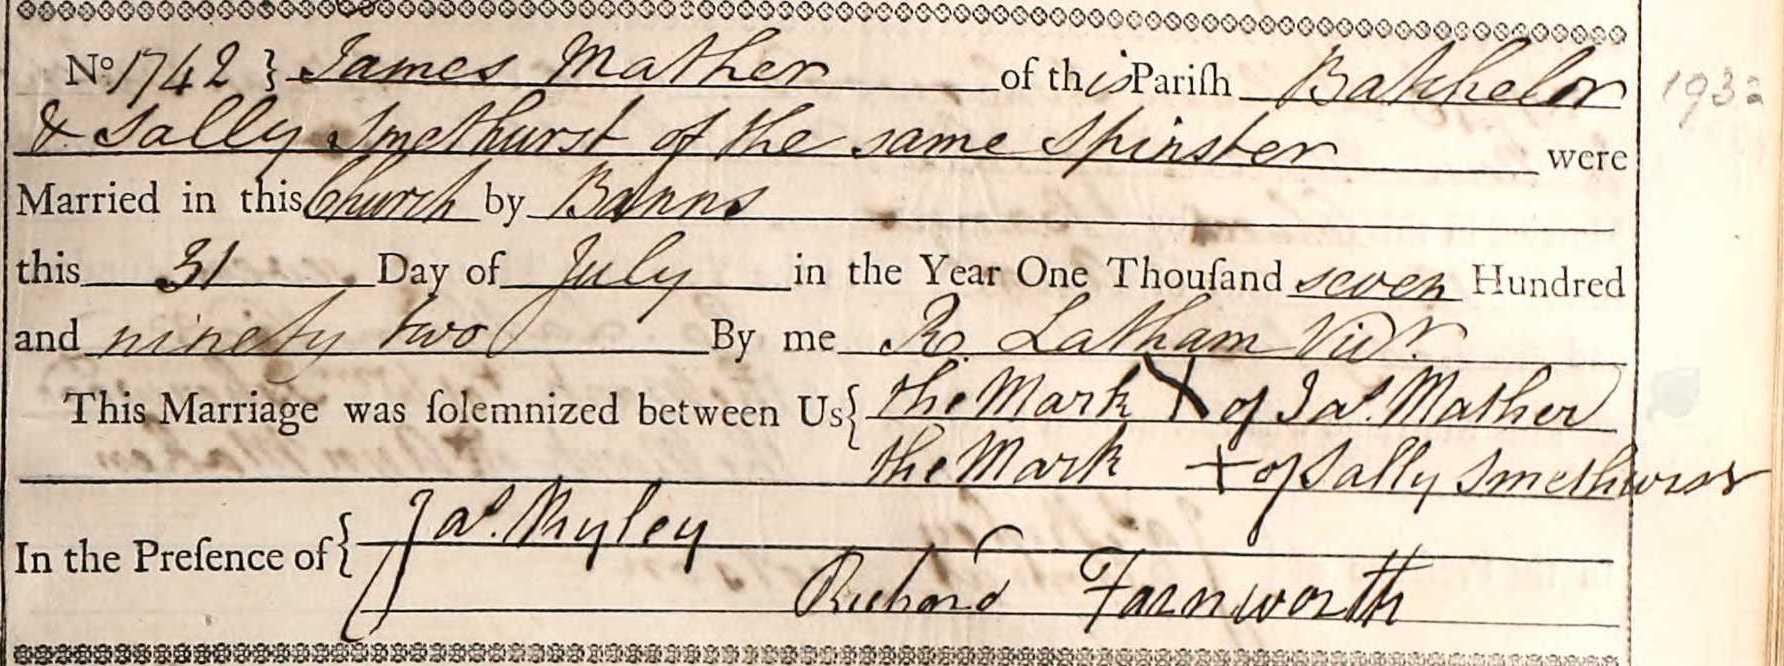 No 1742 } James Mather of this Pariſh Batchelor
& Sally Smethurst of the same Spinster were
Married in this Church by Banns
this 31 Day of July in the Year One Thouſand seven Hundred
and ninety two By me R. Latham Vicr.
This Marriage was ſolemnized between Us { the Mark X of Jas. Mather
the Mark + of Sally Smethurst
In the Preſence of { Jas. Ryley
Richard Farnworth